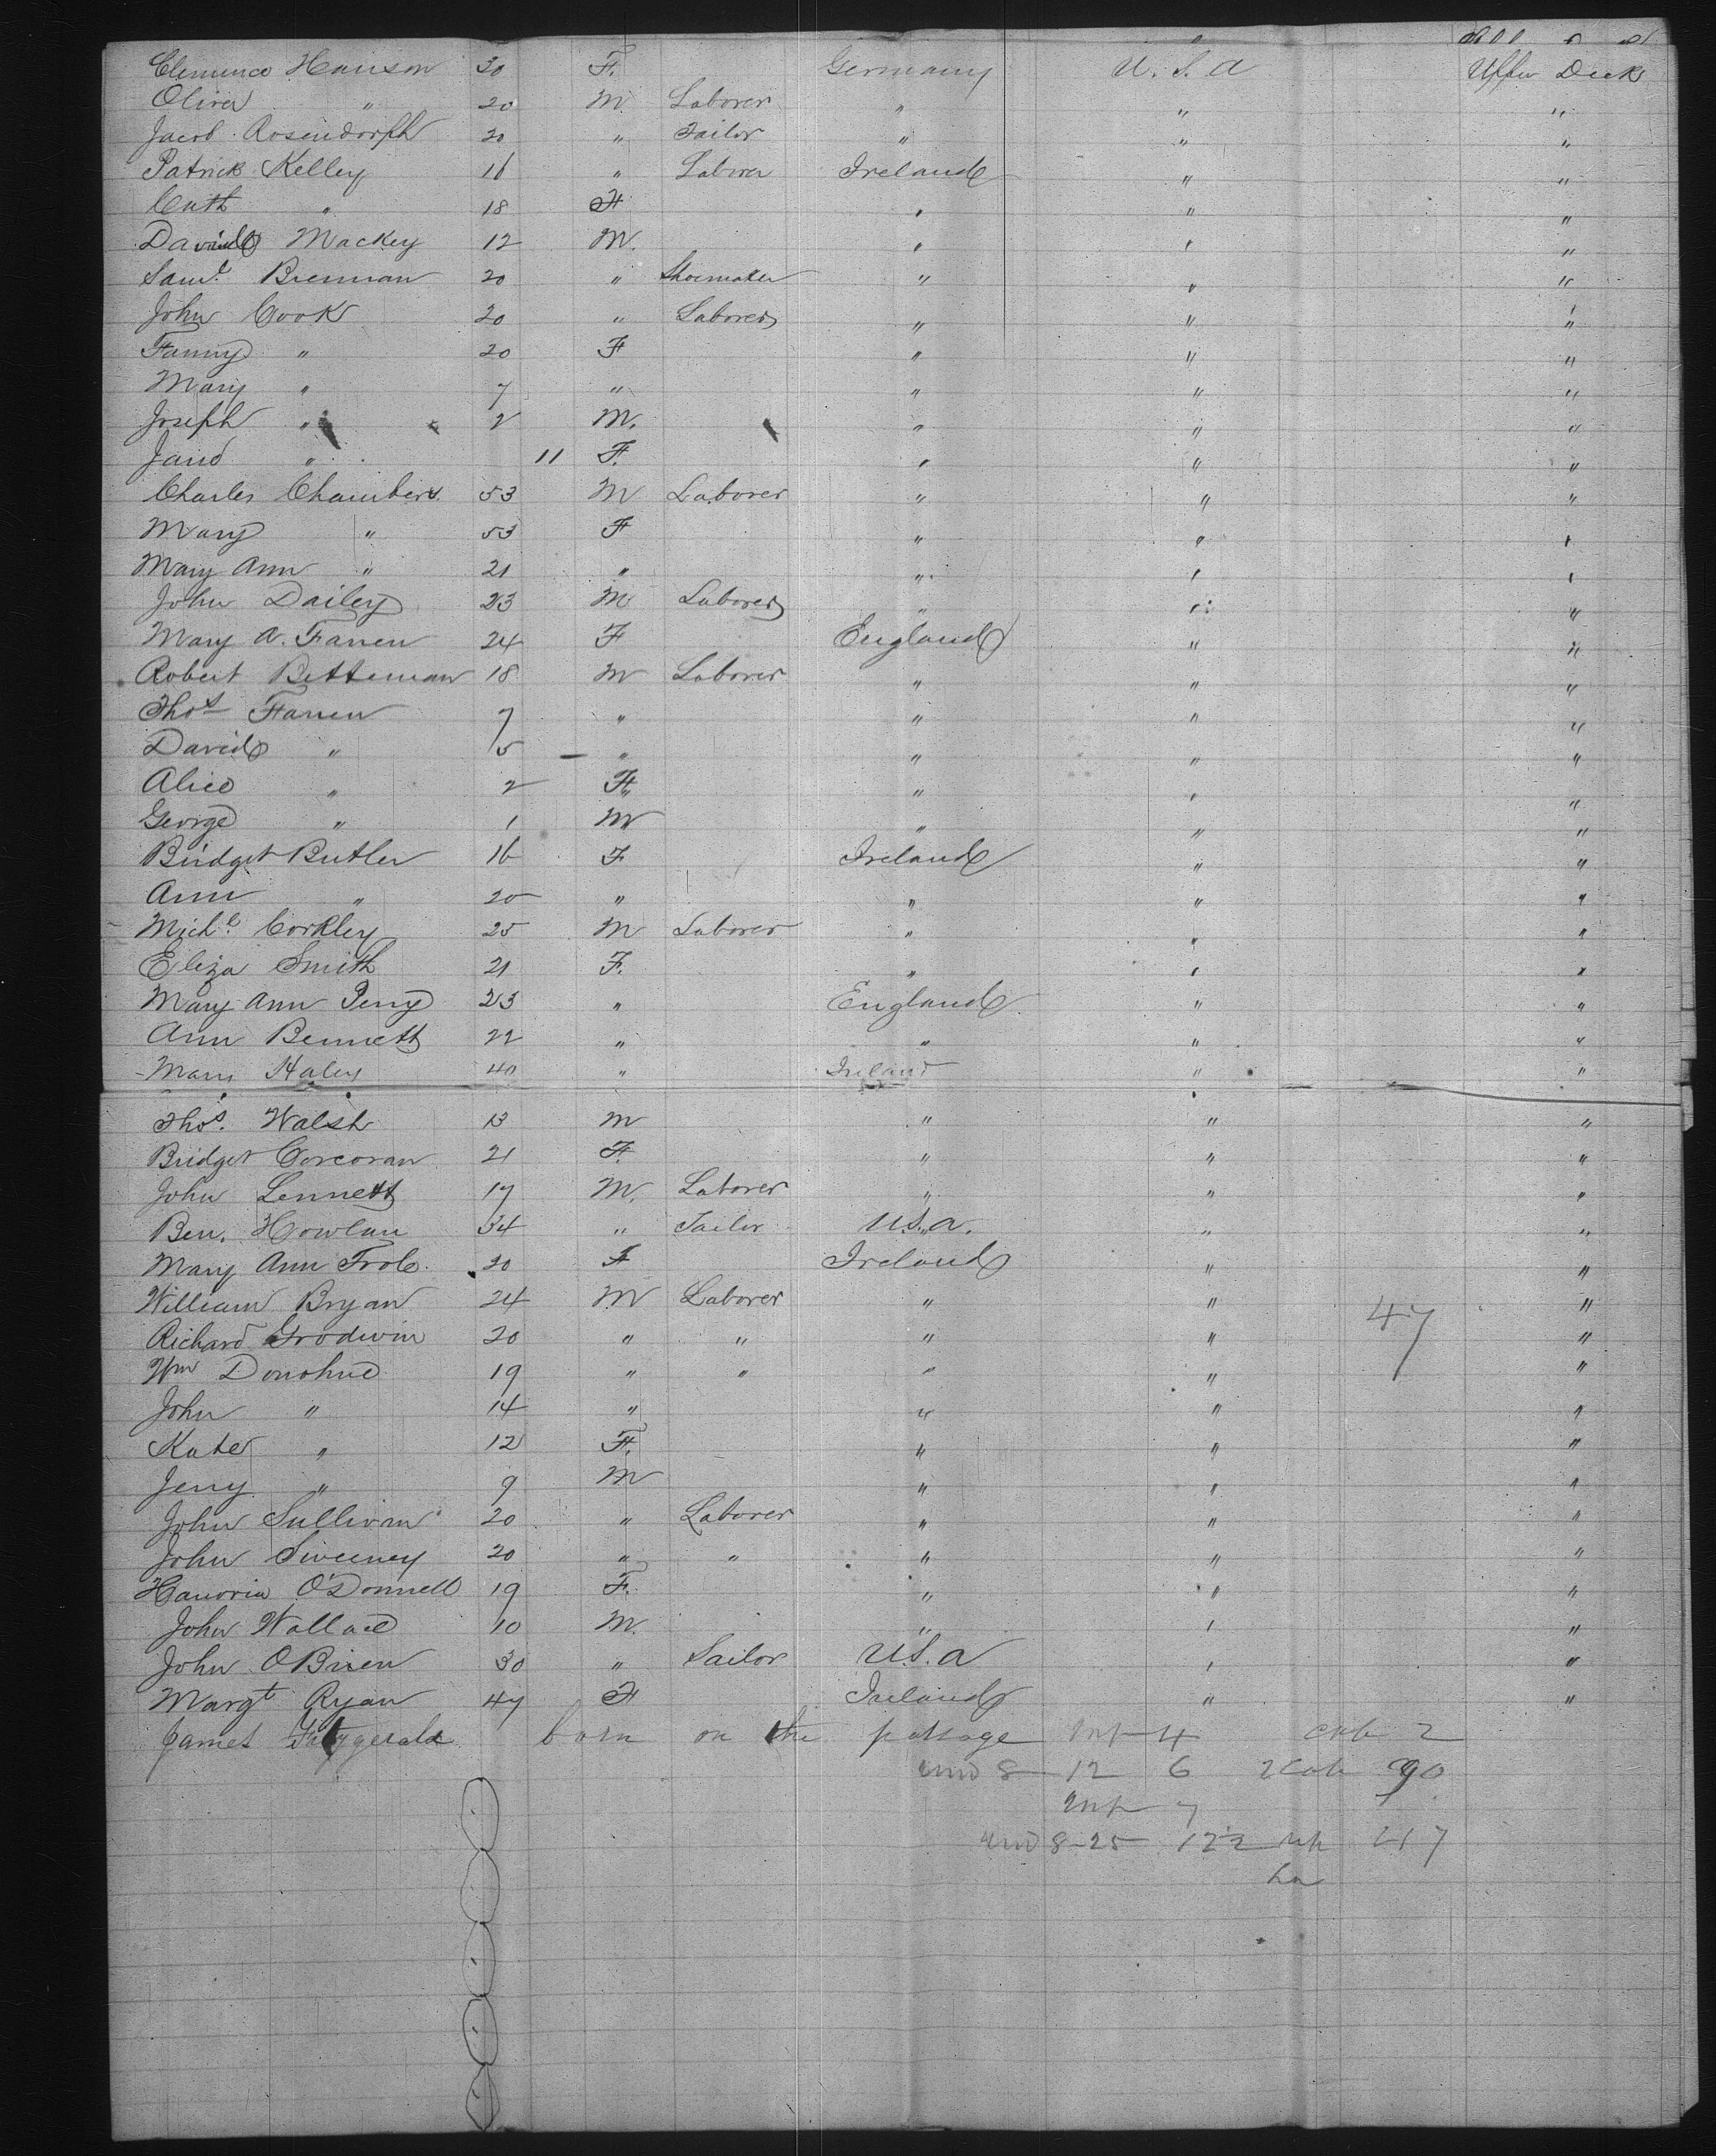 Clemence Hanson 30 F. Germany U. S. A Upper Deck
Oliver " 20 M Laborer " " "
Jacob Rosendorph 20 " Tailor " " "
Patrick Kelley 16 " Laborer Ireland " "
Cath " 18 F " " "
David Mackey 12 M. " " "
Saml. Brennan 20 " Shoemaker " " "
John Cook 20 " Laborer " " "
Fanny " 20 F " " "
Mary " 7 " " " "
Joseph " 2 M. " " "
Jane " 11 F. " " "
Charles Chambers 53 M Laborer " " "
Mary " 53 F " " "
Mary Ann " 21 " " " "
John Dailey 23 M Laborer " " "
Mary A. Farren 24 F England " "
Robert Betteman 18 M Laborer " " "
Thos Farren 7 " " " "
David " 5 " " " "
Alice " 2 F " " "
George " 1 M " " "
Bridget Butler 16 F Ireland " "
Ann " 20 " " " "
Michl. Corkley 25 M Laborer " " "
Eliza Smith 21 F. " " "
Mary Ann Perry 23 " England " "
Ann Bennett 22 " " " "
Mary Haley 40 " Ireland " "
Thos. Walsh 13 M " " "
Bridget Corcoran 21 F. " " "
John Lennett 17 M. Laborer " " "
Ben. Howlan 34 " Tailor U.S.A. " "
Mary Ann Frole 20 F Ireland " "
William Bryan 24 M Laborer " " "
47
Richard Grodwin 20 " " " " "
Wm Donohue 19 " " " " "
John " 14 " " " "
Kate " 12 F. " " "
Jerry " 9 M " " "
John Sullivan 20 " Laborer " " "
John Sweeney 20 " " " " "
Hanoria O'Donnell 19 F. " " "
John Wallace 10 M. " " "
John OBrien 30 " Sailor U.S.A " "
Margt Ryan 47 F Ireland " "
James Fitzgerald born on the passage Inf 4 cab 2
und 8 12 6 2 Cab 90
Inf 7
und 8-25 12½ up 217